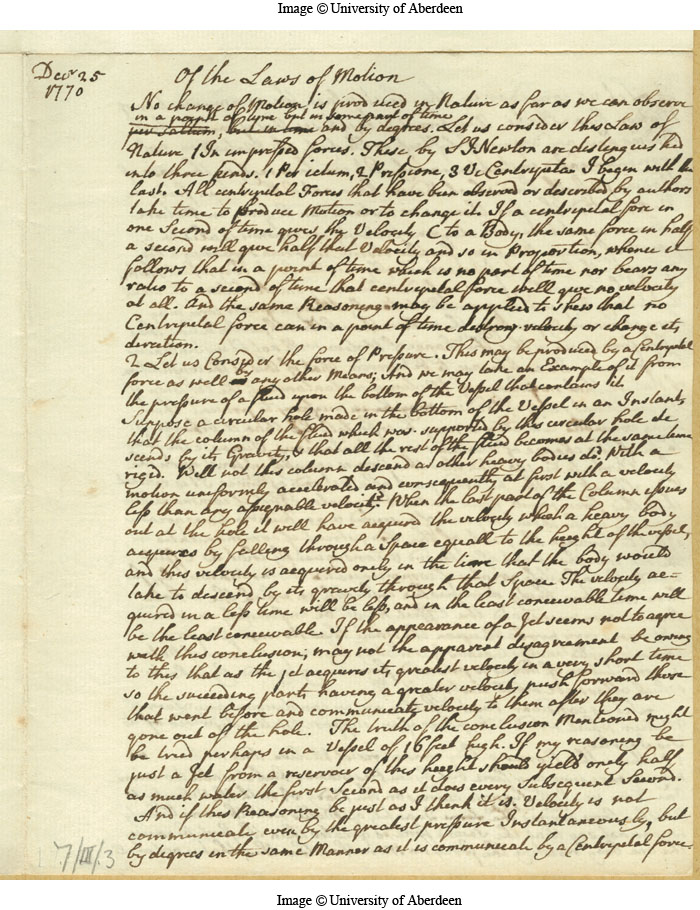 Image © University of Aberdeen
Decr 25
1770
Of the Laws of Motion
No change of Motion is produced in Nature as far as we can observe
in a point of tyme but in some part of time
per saltum, but in time and by degrees. Let us consider this Law of
Nature 1 In impressed forces. These by S I Newton are distinguished
into three kinds. 1 Per ictum, 2 Pressione, 3 Vi Centripeta I begin with the
last. All centripetal Forces that have been observed or described by authors
take time to produce Motion or to change it. If a centripetal force in
one Second of time gives the Velocity C to a Body, the same force in half
a second will give half that Velocity and so in Proportion, whence it
follows that in a point of time which is no part of time nor bears any
ratio to a second of time that centripetal force will give no velocity
at all. And the same Reasoning may be applied to shew that no
Centripetal force can in a point of time destroy velocity or change its
direction.
2 Let us Consider the force of Pressure. This may be produced by a Centripetal
force as well by any other Means; And we may take an Example of it from
the pressure of a fluid upon the bottom of the Vessel that contains it
Suppose a circular hole made in the bottom of the Vessel in an Instant,
that the column of the fluid which was supported by this circular hole de
scends by its Gravity, & that all the rest of the fluid becomes at the same time
rigid. Will not this column descend as other heavy bodies do. With a
motion uniformly accelerated and consequently at first with a velocity
less than any assignable velocity. When the last part of the Column issues
out at the hole it will have acquired the velocity which a heavy body
acquires by falling through a Space equall to the height of the vessel,
and this velocity is acquired onely in the time that the body would
take to descend by its gravity through that Space. The velocity ac=
quired in a less time will be less, and in the least conceivable time will
be the least conceivable. If the appearance of a Jet seems not to agree
with this conclusion, may not the apparent disagreement be owing
to this that as the jet acquires its greatest velocity in a very short time
so the succeeding parts having a greater velocity push forward those
that went before and communicate velocity to them after they are
gone out of the hole. The truth of the conclusion Mentioned might
be tried perhaps in a Vessel of 16 feet high. If my reasoning be
just a Jet from a reservoir of this height should yield onely half
as much water the first Second as it does every Subsequent Second.
And if this Reasoning be just as I think it is. Velocity is not
communicate even by the greatest pressure Instantaneously, but
by degrees in the same Manner as it is communicate by a Centripetal force.
7/III/3
Image © University of Aberdeen